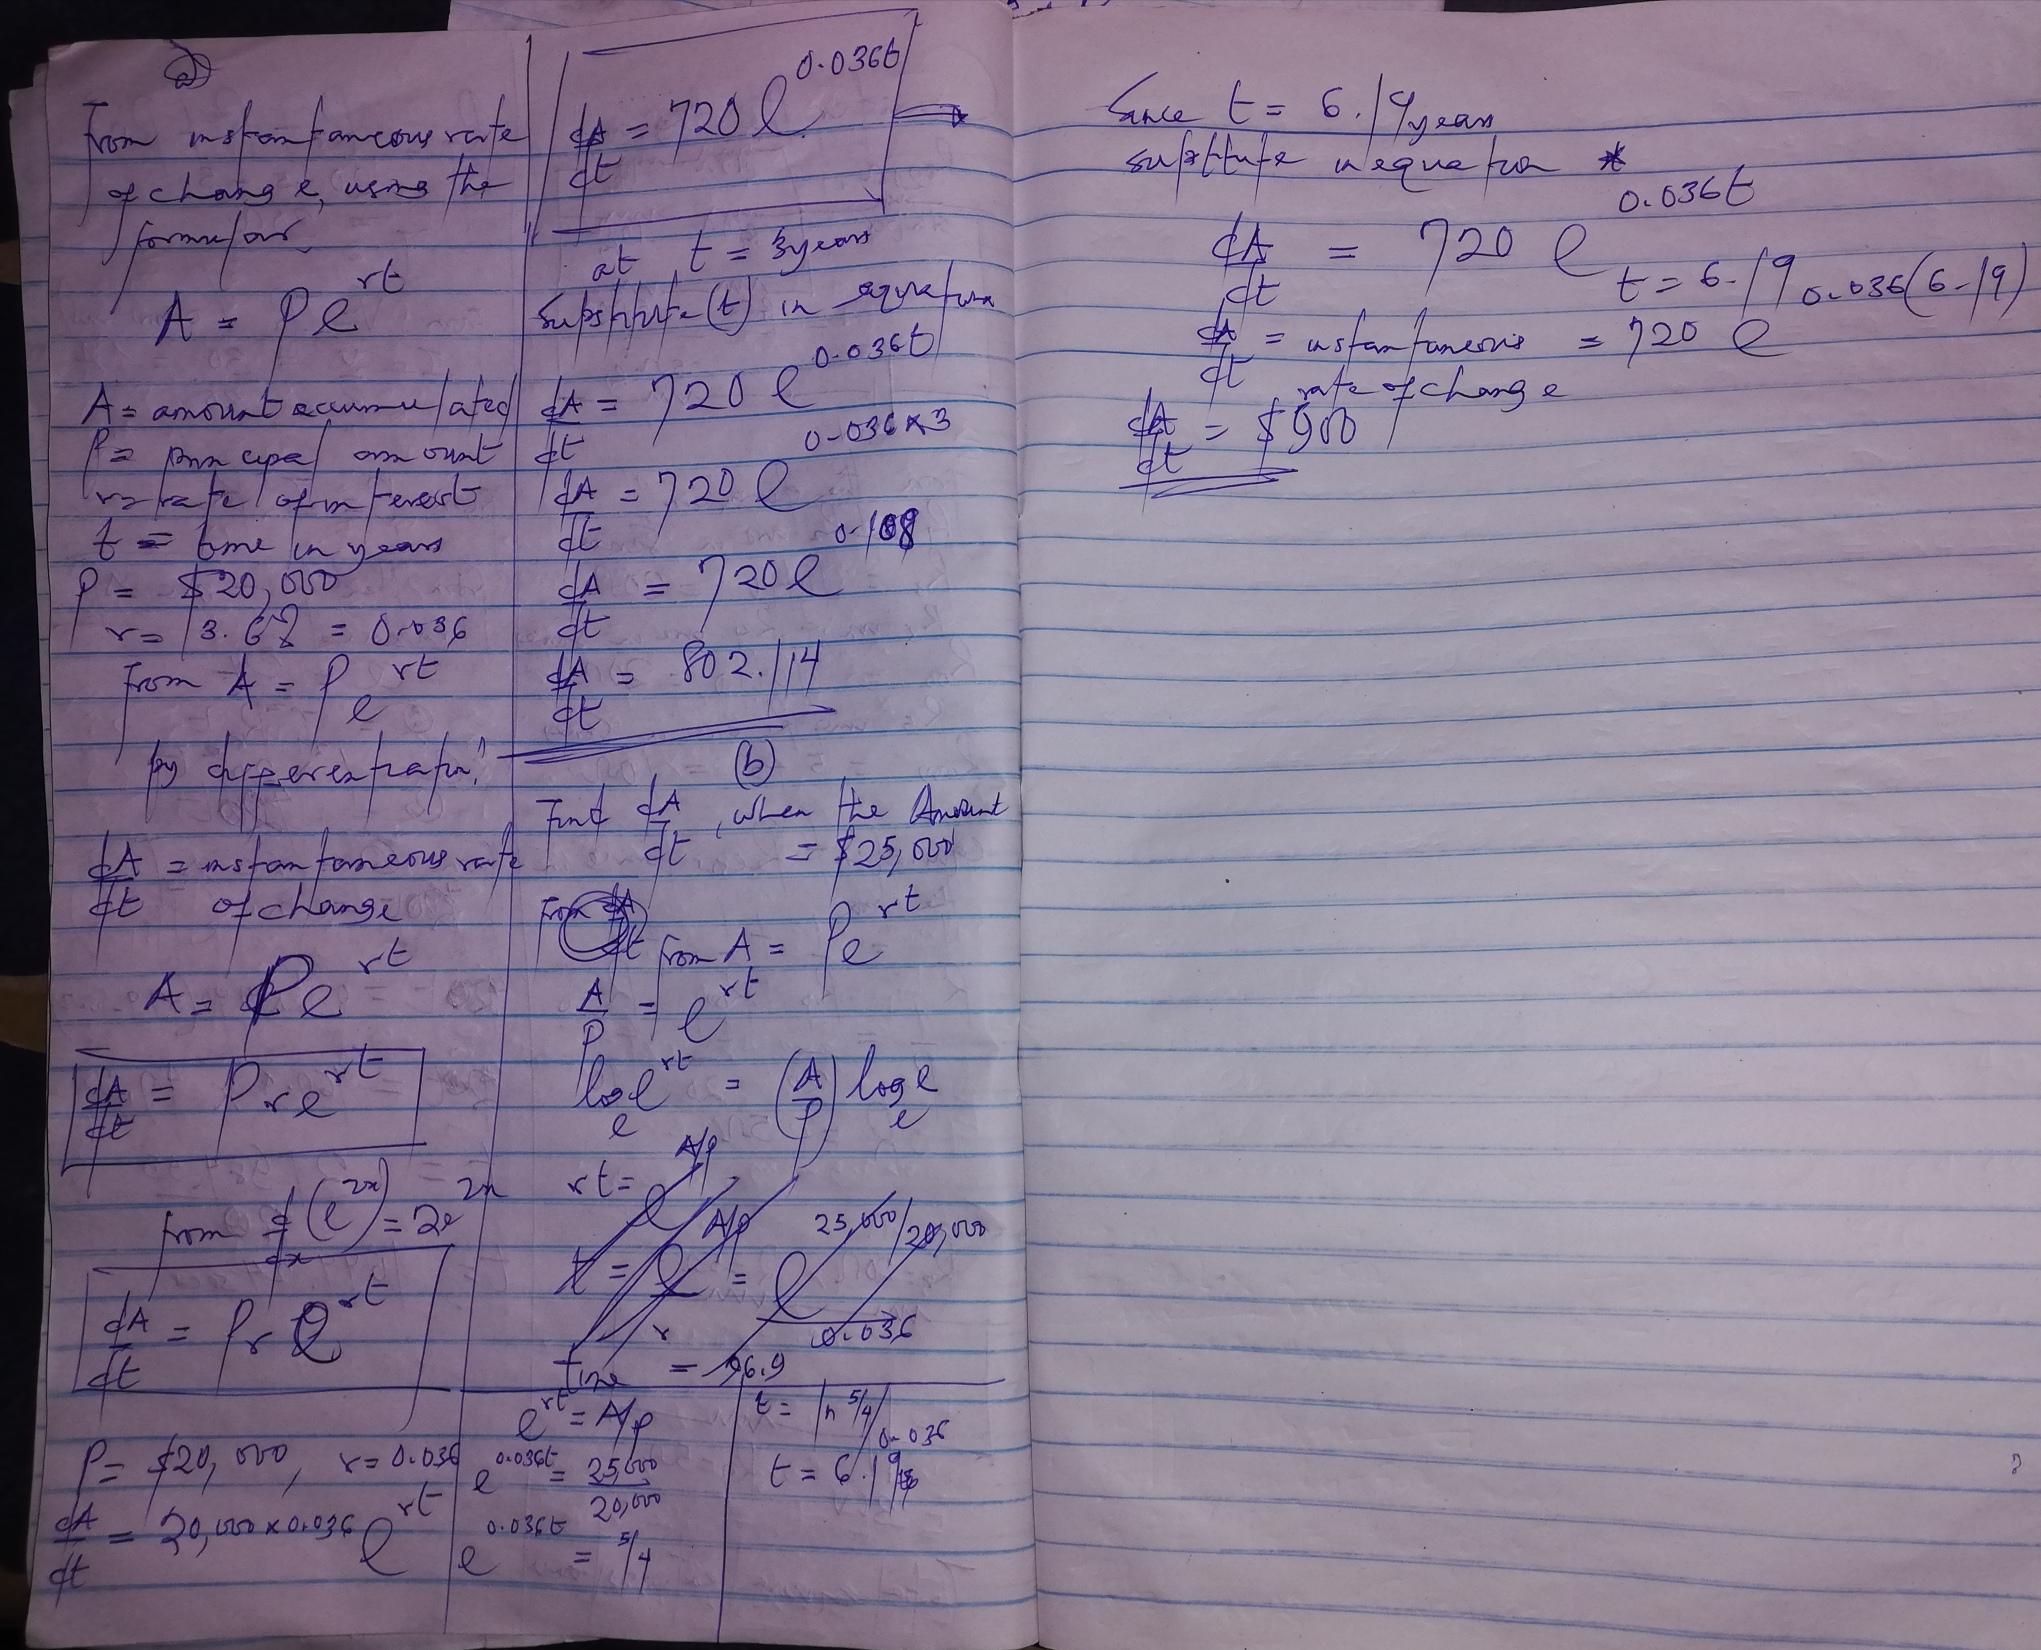 a)
From instantaneous rate
of change, using the
formular
A = Pe^rt
A = amount accumulated
P = principal amount
r = rate of interest
t = time in years
P = $20,000
r = 3.6% = 0.036
from A = Pe^rt
by differentiation!
dA/dt = instantaneous rate
of change
A = Pe^rt
dA/dt = Pre^rt
from d/dx (e^2x) = 2e^2x
dA/dt = Pre^rt
P = $20,000, r = 0.036
dA/dt = 20,000 x 0.036 e^rt
dA/dt = 720e^0.036t
at t = 3years
Substitute (t) in equation
dA/dt = 720e^0.036t
dA/dt = 720e^0.036x3
dA/dt = 720e^0.108
dA/dt = 802.114
(b)
Find dA/dt, when the Amount
= $25,000
From dA/dt from A = Pe^rt
A/P = e^rt
log_e e^rt = (A/P) log_e e
rt = e^A/P
t = e^A/P / r = e^25,000/20,000 / 0.036
Time = 96.9
e^rt = A/P
e^0.036t = 25,000/20,000
e^0.036t = 5/4
t = ln 5/4 / 0.036
t = 6.19
Since t = 6.19years
substitute in equation *
dA/dt = 720e^0.036t
t = 6.19
dA/dt = instantaneous rate of change = 720e^0.036(6.19)
dA/dt = $900